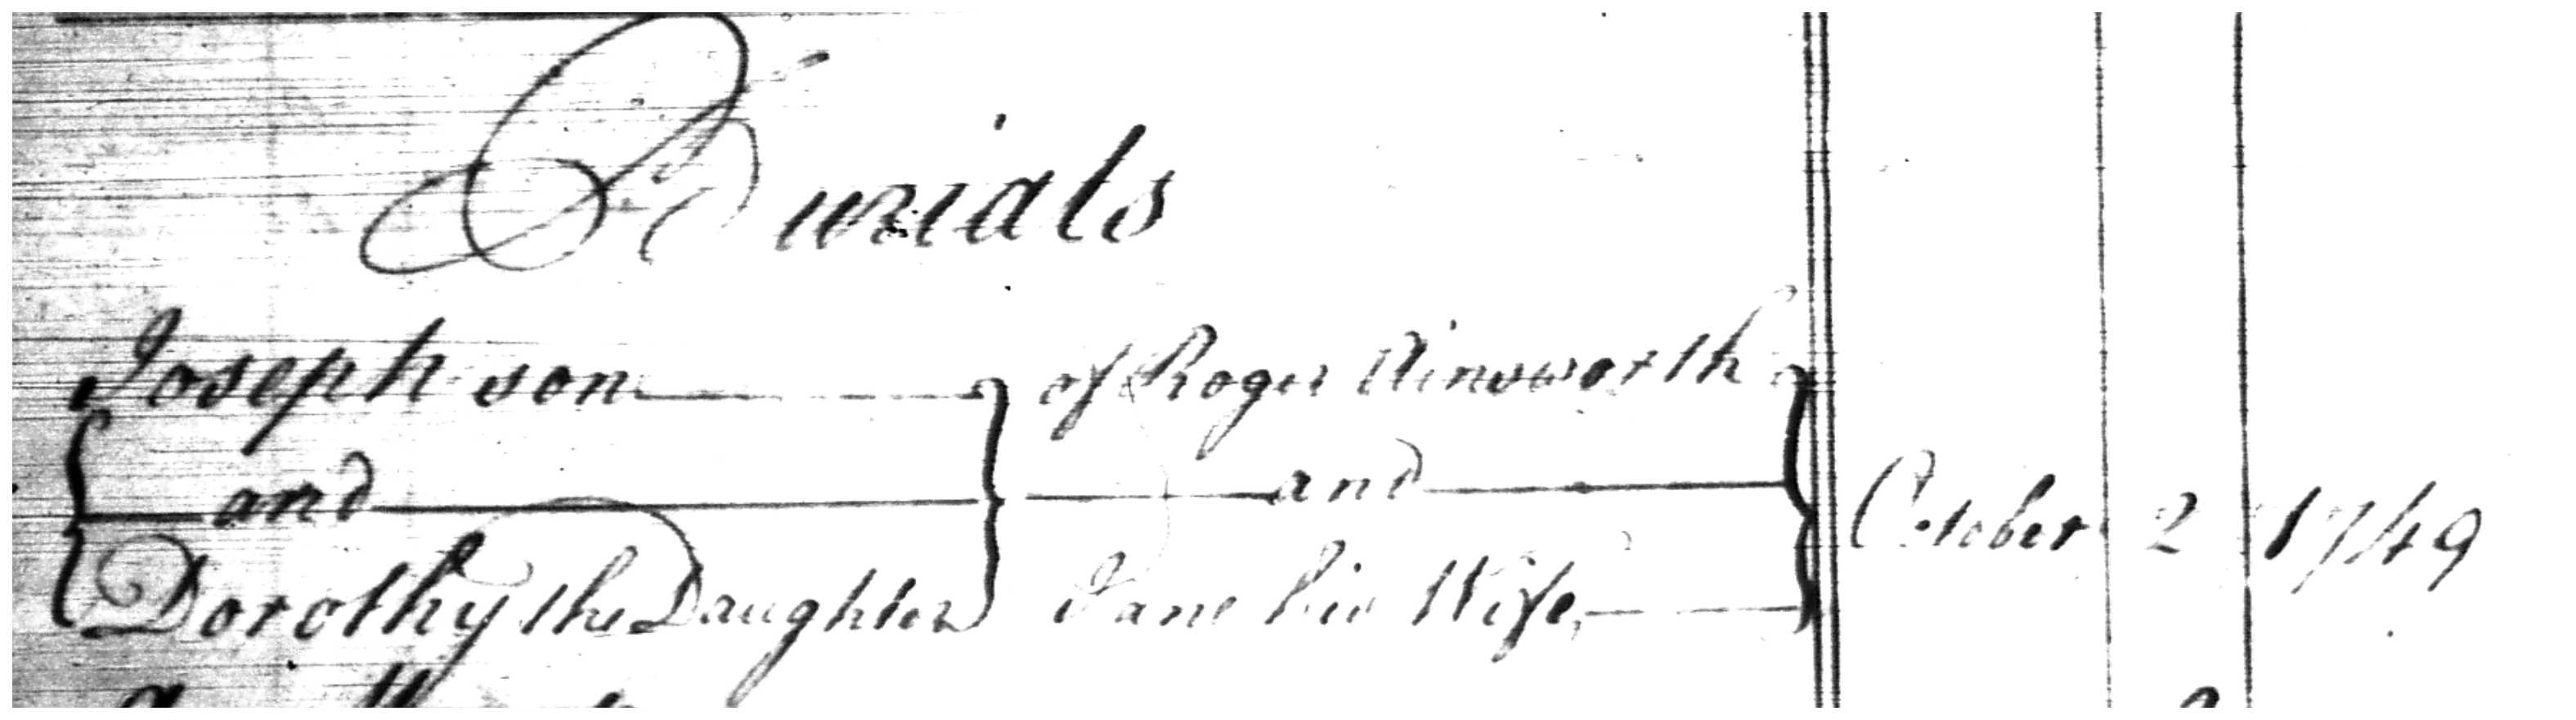 Burials
Joseph son of Roger Ainsworth
and and October 2 1749
Dorothy the Daughter Jane his Wife,